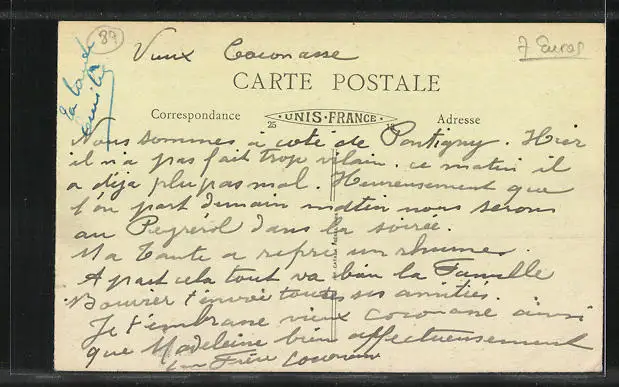 89
7 Euros
Vieux Coconasse
CARTE POSTALE
Correspondance
UNIS-FRANCE
Adresse
25
Nous sommes à coté de Pontigny. Hier
il n'a pas fait trop vilain. ce matin il
a déja plu pas mal. Heureusement que
l'on part demain matin nous serons
au dans la soirée.
Ma Tante a repris un rhume.
A part cela tout va bien la Famille
Bouvier t'envoie toutes ses amitiés.
Je t'embrasse vieux coconasse ainsi
que Madeleine bien affectueusement
ton Frère